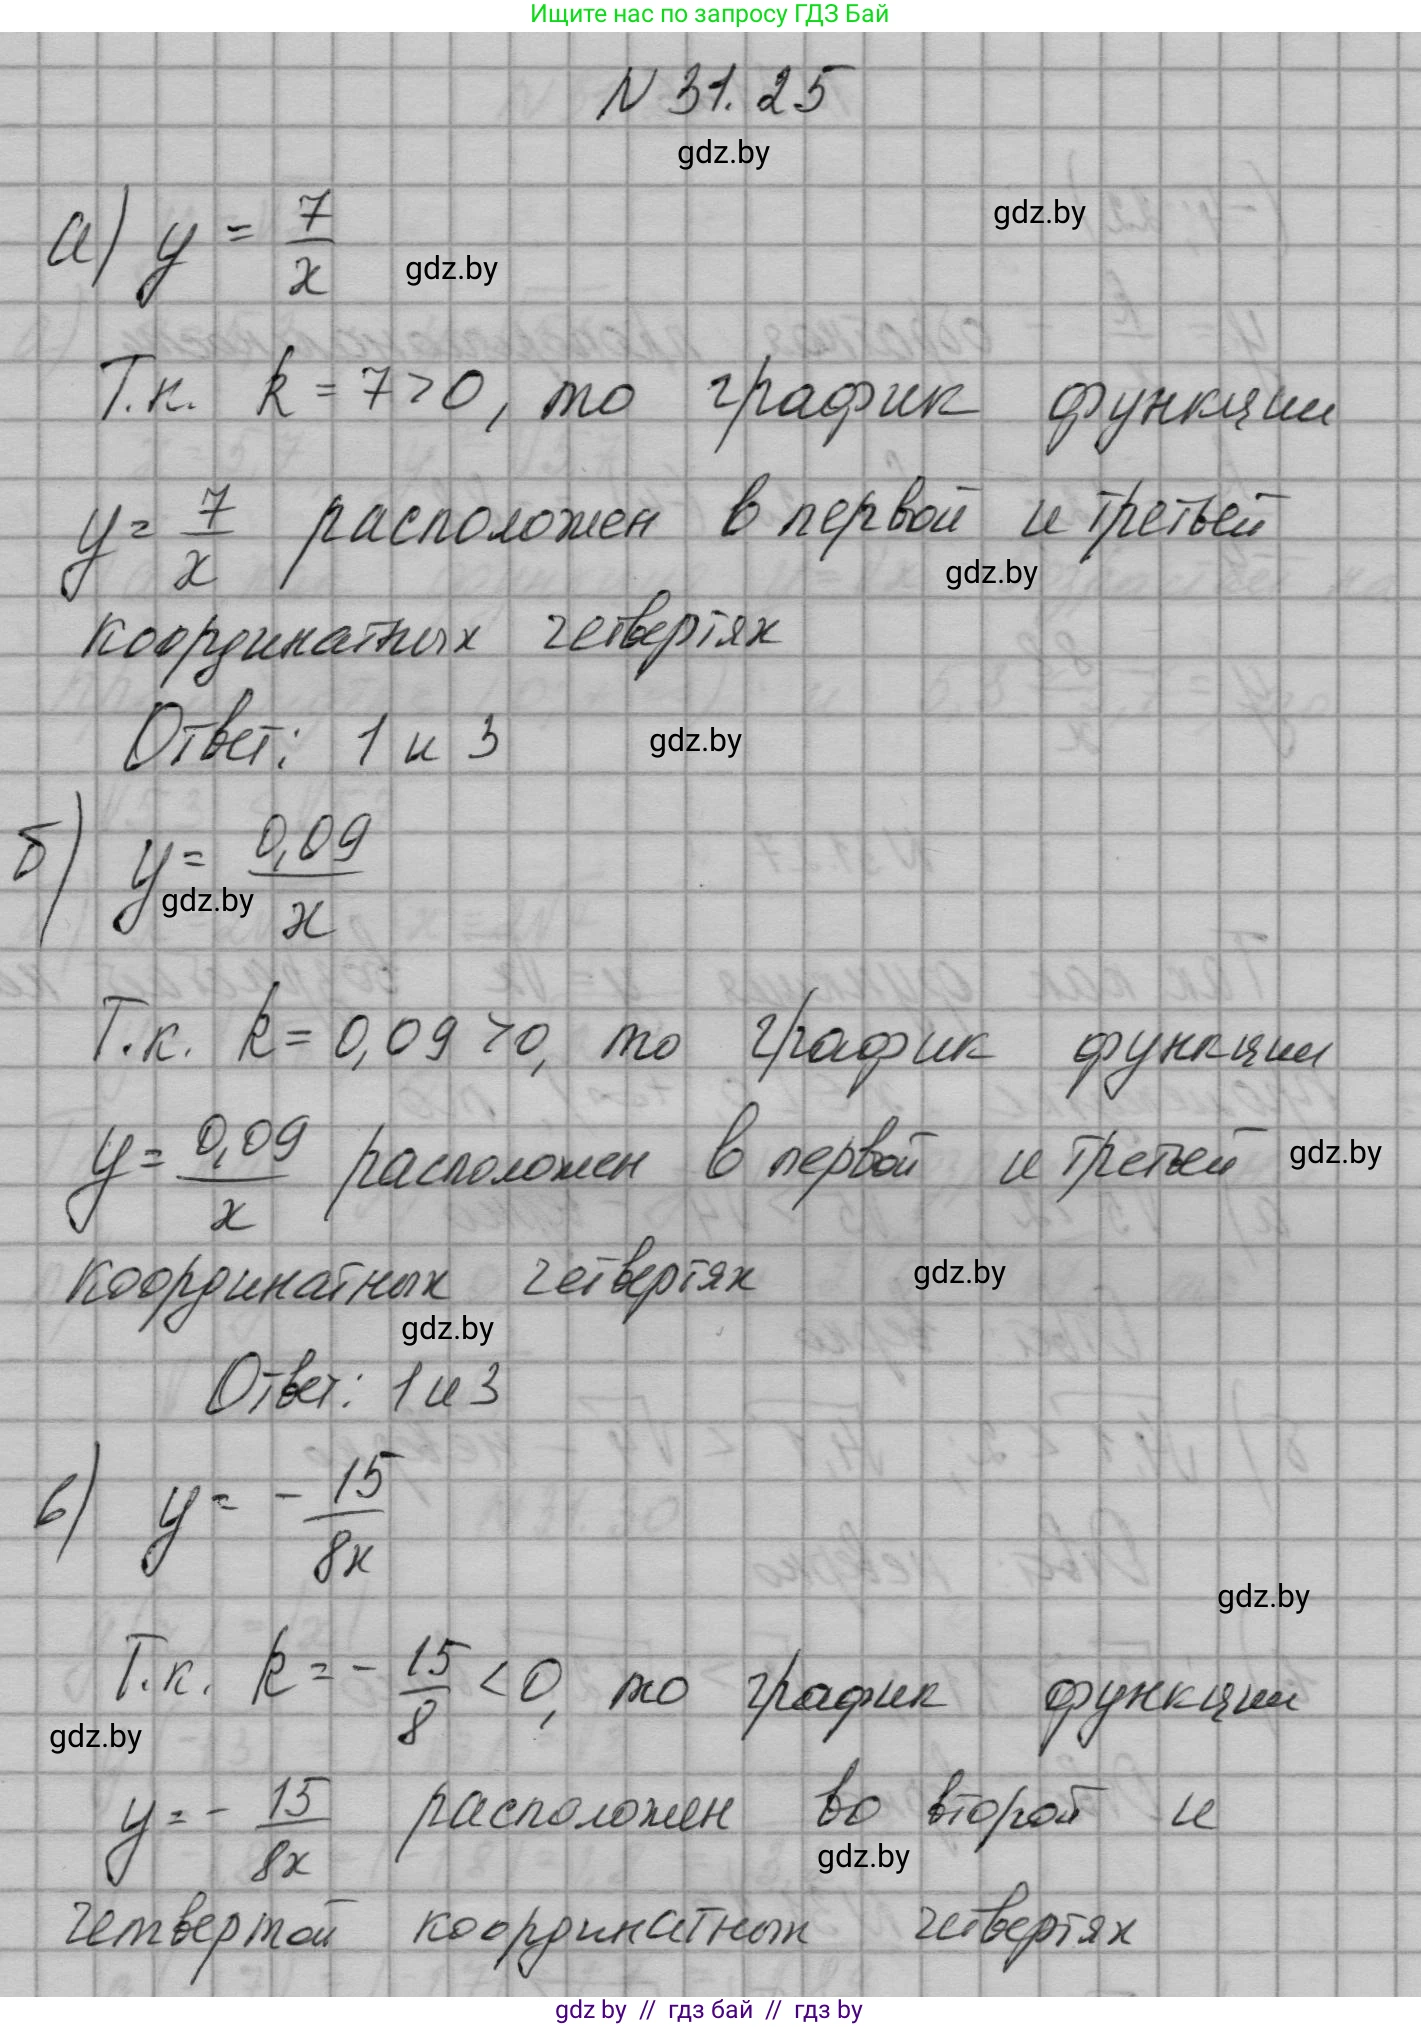 Ищите нас по запросу ГДЗ Бай
N 31.25
gdz.by
gdz.by
а) y = 7/x
gdz.by
Т.к. k = 7 > 0, то график функции
y = 7/x расположен в первой и третьей
gdz.by
координатных четвертях
Ответ: 1 и 3
gdz.by
б) y = 0,09/x
gdz.by
Т.к. k = 0,09 > 0, то график функции
y = 0,09/x расположен в первой и третьей
gdz.by
координатных четвертях
gdz.by
gdz.by
Ответ: 1 и 3
в) y = - 15/8x
gdz.by
Т.к. k = - 15/8 < 0, то график функции
gdz.by
y = - 15/8x расположен во второй и
gdz.by
четвертой координатных четвертях
gdz by // гдз бай // гдз by